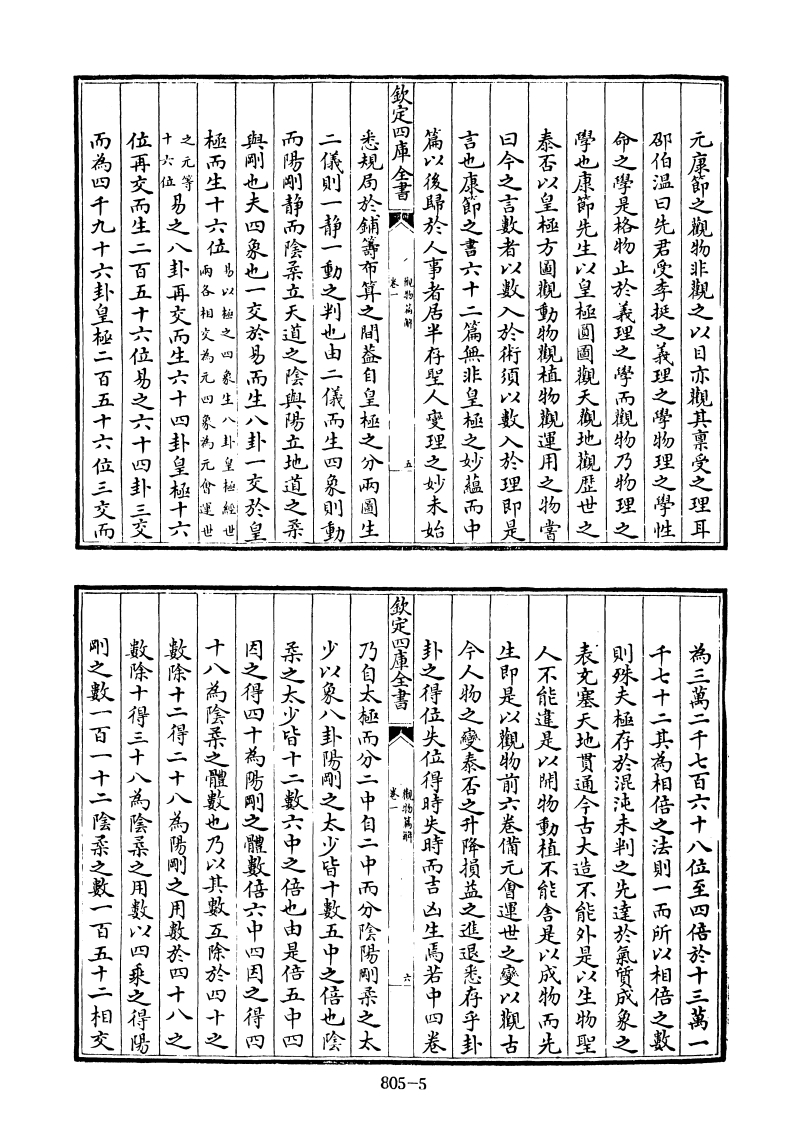 元康節之觀物非觀之以目亦觀其稟受之理耳
邵伯溫曰先君受李挺之義理之學物理之學性
命之學是格物止於義理之學而觀物乃物理之
學也康節先生以皇極圓圖觀天觀地觀歷世之
泰否以皇極方圖觀動物觀植物觀運用之物嘗
曰今之言數者以數入於術須以數入於理即是
言也康節之書六十二篇無非皇極之妙蘊而中
篇以後歸於人事者居半存聖人變理之妙未始
欽定四庫全書
觀物篇解
卷一
五
悉規局於鋪籌布算之間葢自皇極之分兩圖生
二儀則一静一動之判也由二儀而生四象則動
而陽剛静而陰柔立天道之陰與陽立地道之柔
與剛也夫四象也一交於易而生八卦一交於皇
極而生十六位易以極之四象生八卦皇極經世
兩各相交為元四象為元會運世
之元等
十六位易之八卦再交而生六十四卦皇極十六
位再交而生二百五十六位易之六十四卦三交
而為四千九十六卦皇極二百五十六位三交而
為三萬二千七百六十八位至四倍於十三萬一
千七十二其為相倍之法則一而所以相倍之數
則殊夫極存於混沌未判之先達於氣質成象之
表充塞天地貫通今古大造不能外是以生物聖
人不能違是以開物動植不能舍是以成物而先
生即是以觀物前六卷備元會運世之變以觀古
今人物之變泰否之升降損益之進退悉存乎卦
卦之得位失位得時失時而吉凶生焉若中四卷
欽定四庫全書
觀物篇解
卷一
六
乃自太極而分二中自二中而分陰陽剛柔之太
少以象八卦陽剛之太少皆十數五中之倍也陰
柔之太少皆十二數六中之倍也由是倍五中四
因之得四十為陽剛之體數倍六中四因之得四
十八為陰柔之體數也乃以其數互除於四十之
數除十二得二十八為陽剛之用數於四十八之
數除十得三十八為陰柔之用數以四乘之得陽
剛之數一百一十二陰柔之數一百五十二相交
805-5